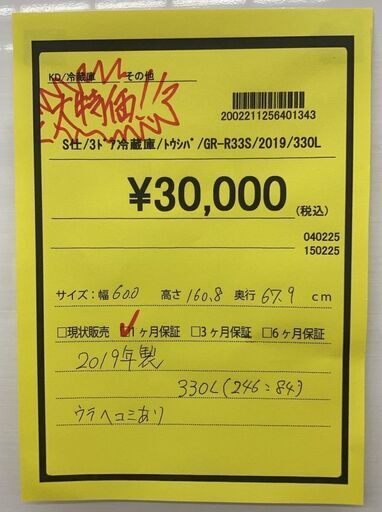 KD/冷蔵庫 その他
大特価!!
2002211256401343
S仕/3ﾄﾞｱ冷蔵庫/ﾄｳｼﾊﾞ/GR-R33S/2019/330L
¥30,000 (税込)
040225
150225
サイズ:幅 60.0 高さ 160.8 奥行 67.9 cm
□現状販売 ☑1ヶ月保証 □3ヶ月保証 □6ヶ月保証
2019年製
330L(246:84)
ウラヘコミあり